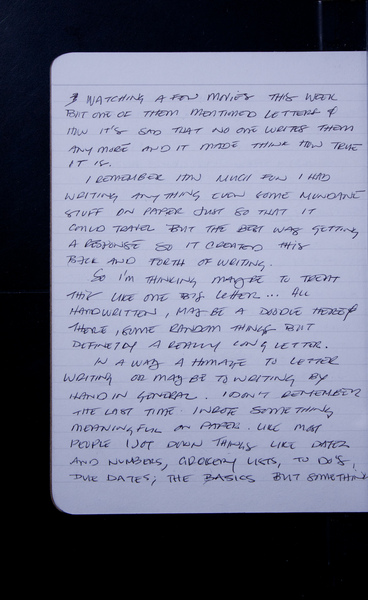 I WATCHING A FEW MOVIES THIS WEEK
BUT ONE OF THEM MENTIONED LETTERS &
HOW IT'S SAD THAT NO ONE WRITES THEM
ANYMORE AND IT MADE THINK HOW TRUE
IT IS.
I REMEMBER HOW MUCH FUN I HAD
WRITING ANYTHING EVEN SOME MUNDANE
STUFF ON PAPER JUST SO THAT IT
COULD TRAVEL BUT THE BEST WAS GETTING
A RESPONSE SO IT CREATED THIS
BACK AND FORTH OF WRITING.
SO I'M THINKING MAYBE TO TREAT
THIS LIKE ONE BIG LETTER... ALL
HANDWRITTEN, MAYBE A DOODLE HERE &
THERE, SOME RANDOM THINGS BUT
DEFINETLY A REALLY LONG LETTER.
IN A WAY A HOMAGE TO LETTER
WRITING OR MAYBE TO WRITING BY
HAND IN GENERAL. I DON'T REMEMBER
THE LAST TIME I WROTE SOMETHING
MEANINGFUL ON PAPER. LIKE MOST
PEOPLE I JOT DOWN THINGS LIKE DATES
AND NUMBERS, GROCERY LISTS, TO DO'S,
DUE DATES; THE BASICS BUT SOMETHING